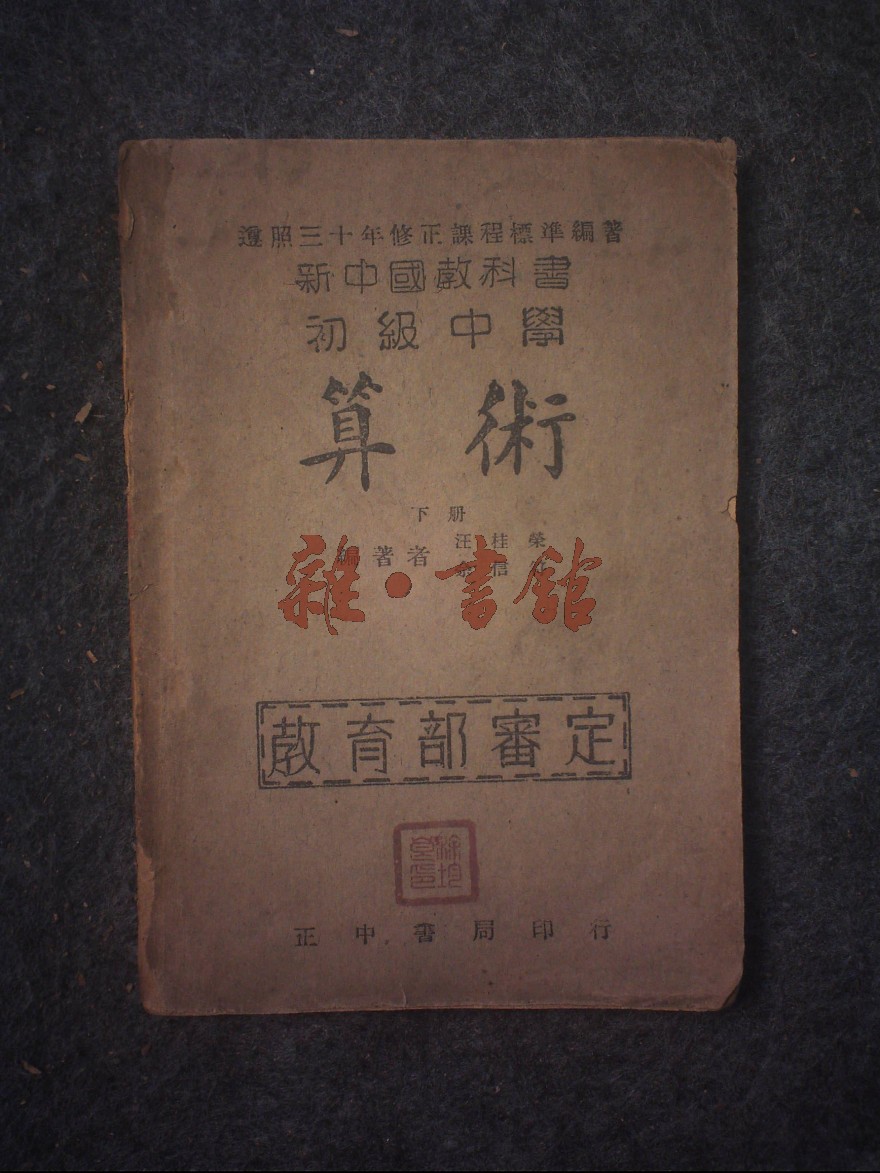 遵照三十年修正課程標準編著
新中國教科書
初級中學
算術
下册
編著者 汪桂榮
信
雜·書館
教育部審定
正中書局印行